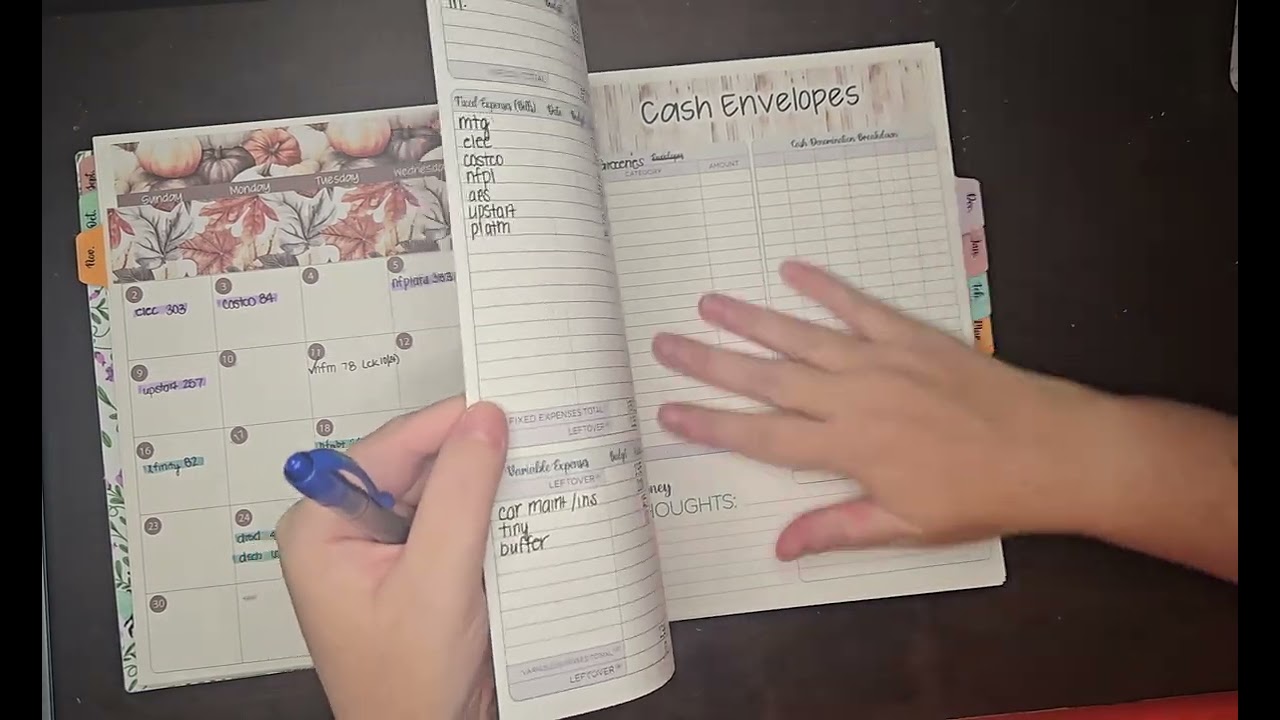 Sept.
Oct.
Nov.
Sunday
Monday
Tuesday
Wednesday
2
elec 303
3
costco 84
4
5
9
upstart 257
10
11
12
16
xfinity 82
17
18
23
24
30
TOTAL
Fixed Expenses (Bills)
Date
mtg
elec
costco
nfpl
aes
upstart
platm
FIXED EXPENSES TOTAL
LEFTOVER
Variable Expenses
Budget
LEFTOVER
car maint/ins
tiny
buffer
LEFTOVER
Cash Envelopes
Groceries
CATEGORY
AMOUNT
Cash Denomination Breakdown
THOUGHTS:
Dec.
Jan.
Feb.
Mar